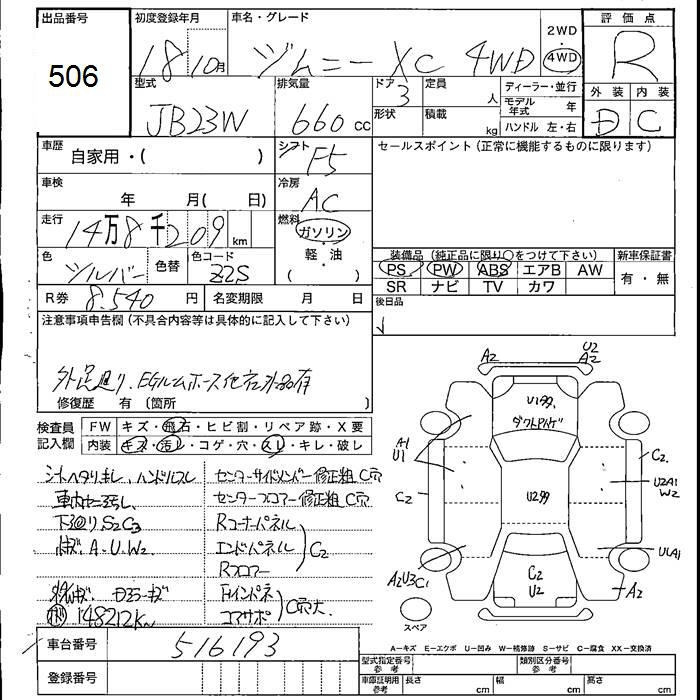 出品番号
506
初度登録年月
18 10月
車名・グレード
ジムニー XC 4WD
2WD
・
4WD
評価点
R
外装 内装
D C
型式
JB23W
排気量
660 cc
ドア
3
定員
人
形状
積載
kg
ディーラー・並行
モデル年式 年
ハンドル 左・右
車歴
自家用・( )
シフト
F5
セールスポイント (正常に機能するものに限ります)
車検
年 月( 日)
冷房
AC
走行
14万8千209 km
燃料
ガソリン
軽・油
( )
色
シルバー
色替
色コード
Z2S
装備品 (純正品に限り○をつけて下さい)
PS PW ABS エアB AW
SR ナビ TV カワ
新車保証書
有・無
R券 8.540 円
名変期限 月 日
後日品
注意事項申告欄 (不具合内容等は具体的に記入して下さい)
外足廻り、EGルムホース他社外品有
修復歴 有 (箇所 )
検査員
記入欄
FW キズ・飛石・ヒビ割・リペア跡・X要
内装 キズ・汚レ・コゲ・穴・スレ・キレ・破レ
シートヘタリ キレ、ハンドルスレ
車内ヤニ汚レ
下廻りS2C3
キズ A・U・W2
148212km
センターサイドメンバー修正粗 C穴
センターフロアー修正粗 C穴
Rコーナーパネル
エンドパネル
Rフロアー
C2
Fインパネ
コアサポ
C穴大
A2
U2
A2
U1
ダクト
A1
U1
C2
U2
C2
U2A1
W2
U1A1
A2
A2U3C1
C2
U2
スペア
A−キズ E−エクボ U−凹み W−補修跡 S−サビ C−腐食 XX−交換済
車台番号
516193
登録番号
型式指定番号
参考
類別区分番号
参考
車庫証明用
参考
長さ cm
幅 cm
高さ cm